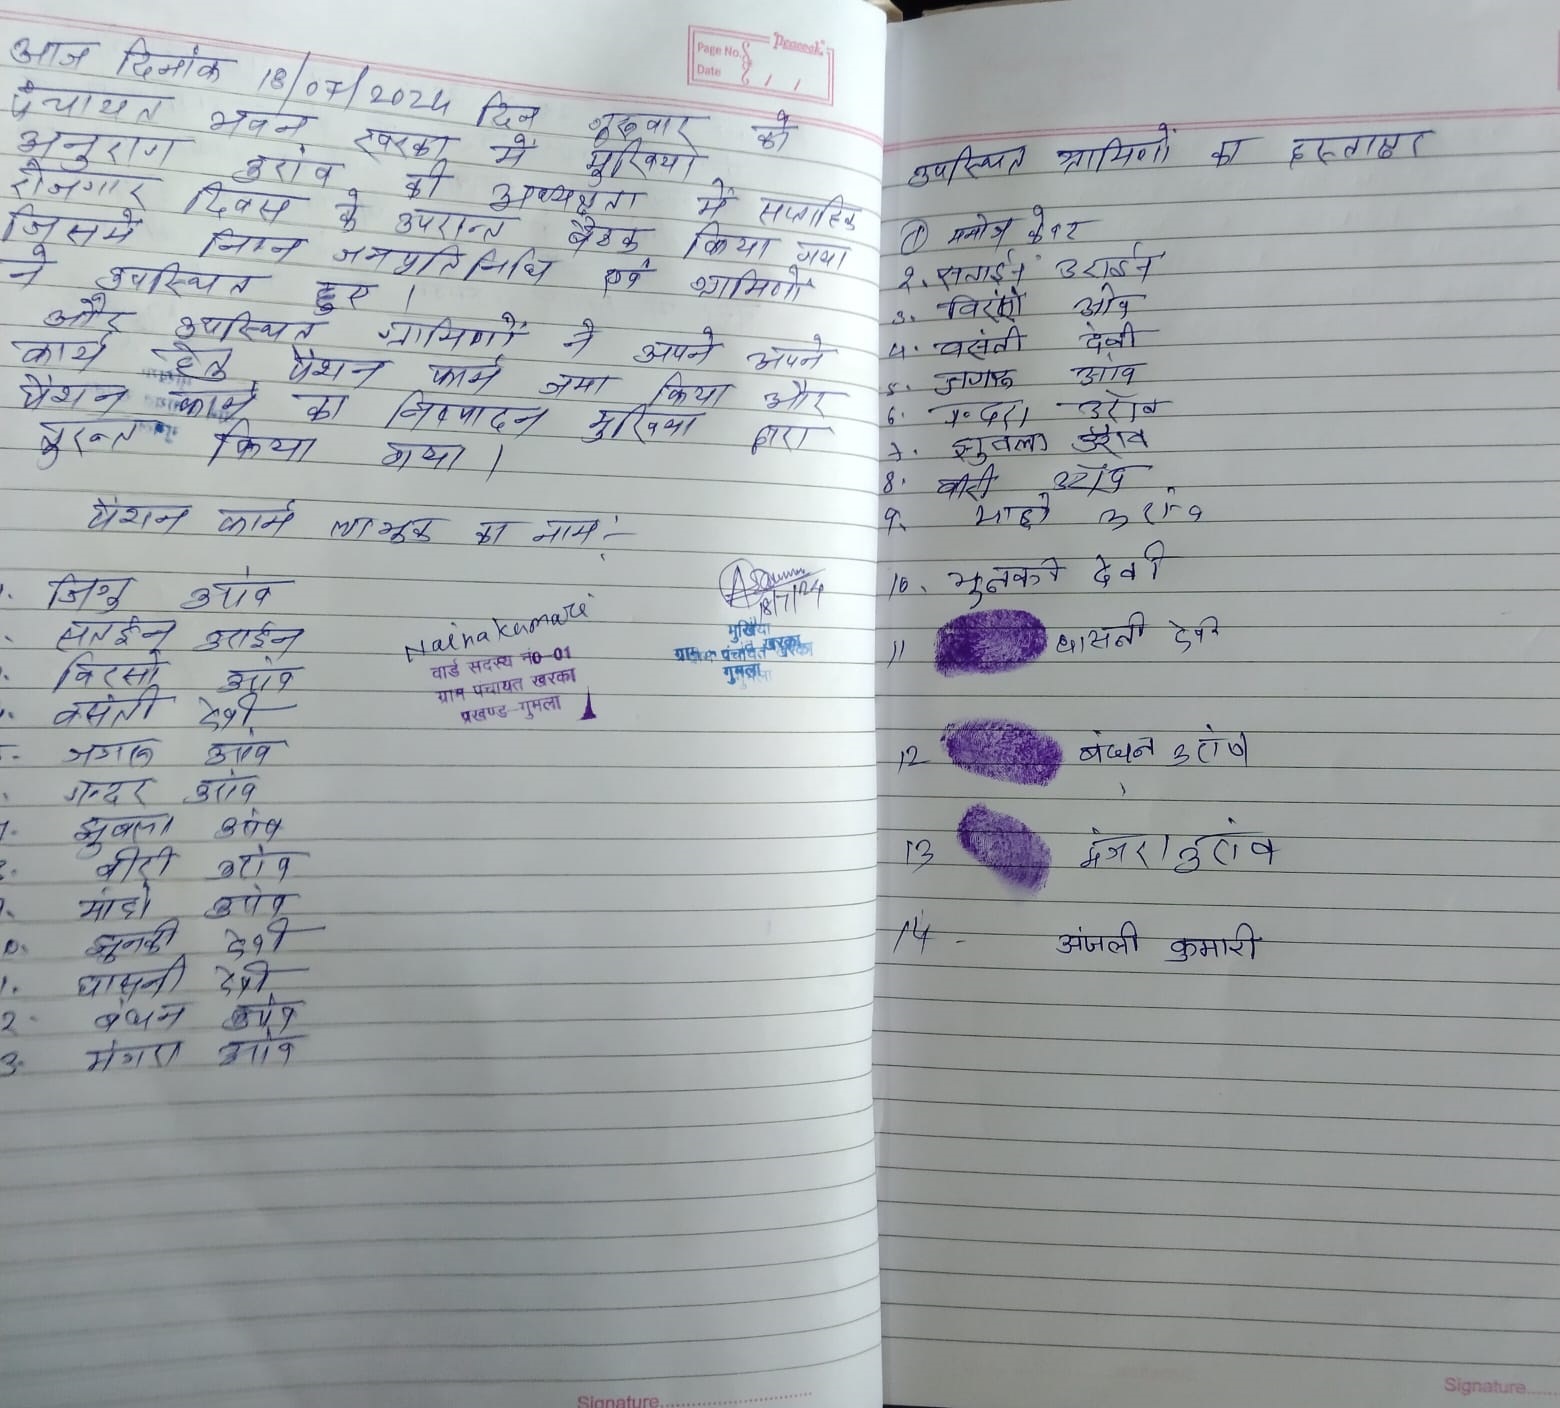 Page No.
Peacock
Date
आज दिनांक 18/07/2024 दिन गुरुवार को
पंचायत भवन खरका में मुखिया
अनुराग उरांव की अध्यक्षता में सप्ताहिक
रोजगार दिवस के उपरान्त बैठक किया गया
जिसमें निम्न जनप्रतिनिधि एवं ग्रामिणों
ने उपस्थित हुए।
और उपस्थित ग्रामिणों ने अपने अपने
कार्य हेतु पेंशन फार्म जमा किया और
पेंशन फार्म का निष्पादन मुखिया द्वारा
तुरन्त किया गया।
पेंशन फार्म का नाम:-
उरांव
सतईन उराईन
बिरसो उरांव
बसंती देवी
जगरू उरांव
गन्दर उरांव
झुबला उरांव
बीरी उरांव
मांहो उरांव
झुनकी देवी
घासनी देवी
बंधन उरांव
मंगरा उरांव
Naina kumari
वार्ड सदस्य नं0-01
ग्राम पंचायत खरका
प्रखण्ड-गुमला
18/7/24
मुखिया
ग्राम पंचायत खरका
गुमला
Signature
उपस्थित ग्रामिणों का हस्ताक्षर
① मनोज
2. उराईन
3. बिरसो
4. बसंती देवी
5. जगरू
6. उरांव
7. झुबला उरांव
8. बीरी उरांव
9. माहो उरांव
10. देवी
11 घासनी देवी
12 बंधन उरांव
13 मंगरा उरांव
14 - अंजली कुमारी
Signature